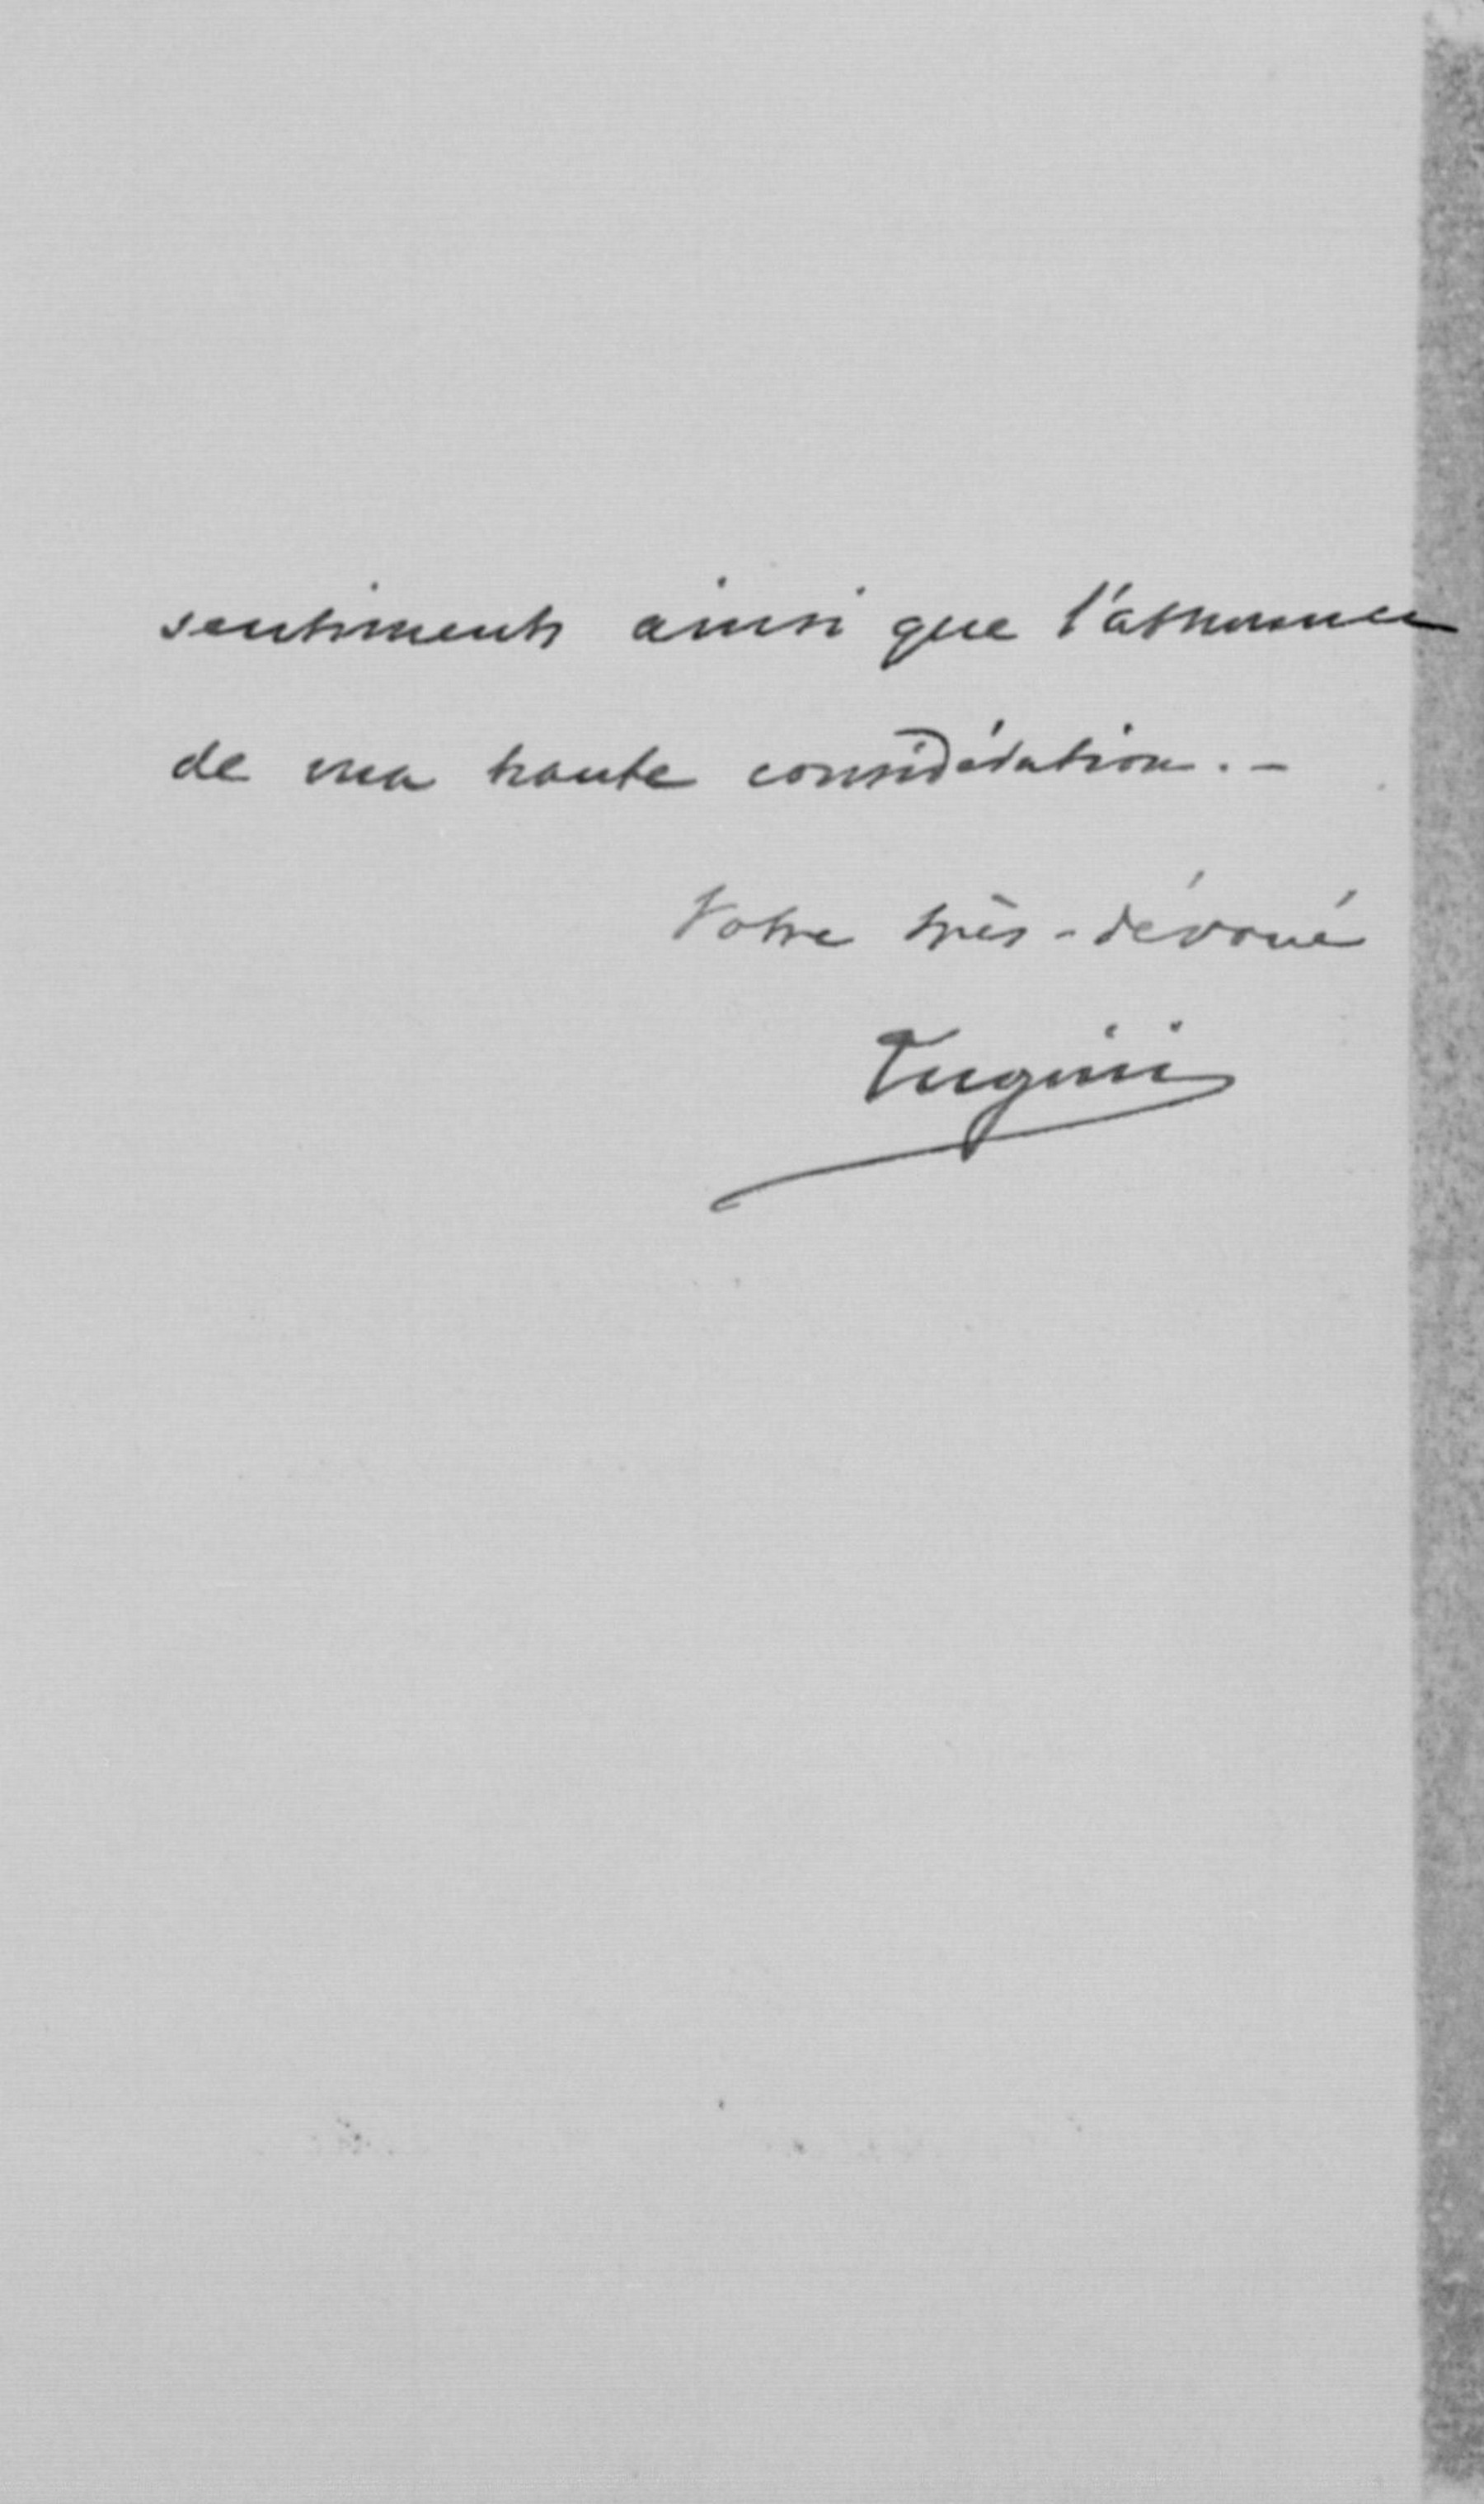 sentiments ainsi que l'assurance
de ma haute considération. -
Votre très-dévoué
Tugini